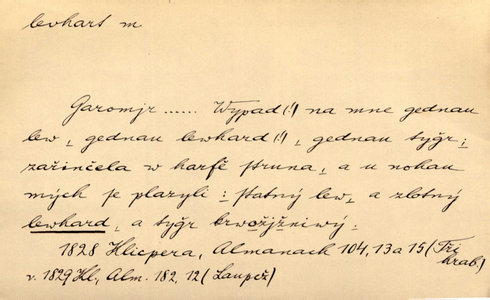 lewhart m
Jaromjr ...... Wypad(!) na mne gednau
lew, gednau lewhard(!), gednau tygr;
zařinčela w harfě struna, a u nohau
mých se plazyli: statný lew, a zlotný
lewhard, a tygr krwožjžniwý.
1828 Klicpera, Almanach 104, 13 a 15 (Tři
hrab.)
v. 1829 Kl., Alm. 182, 12 (Laupež)